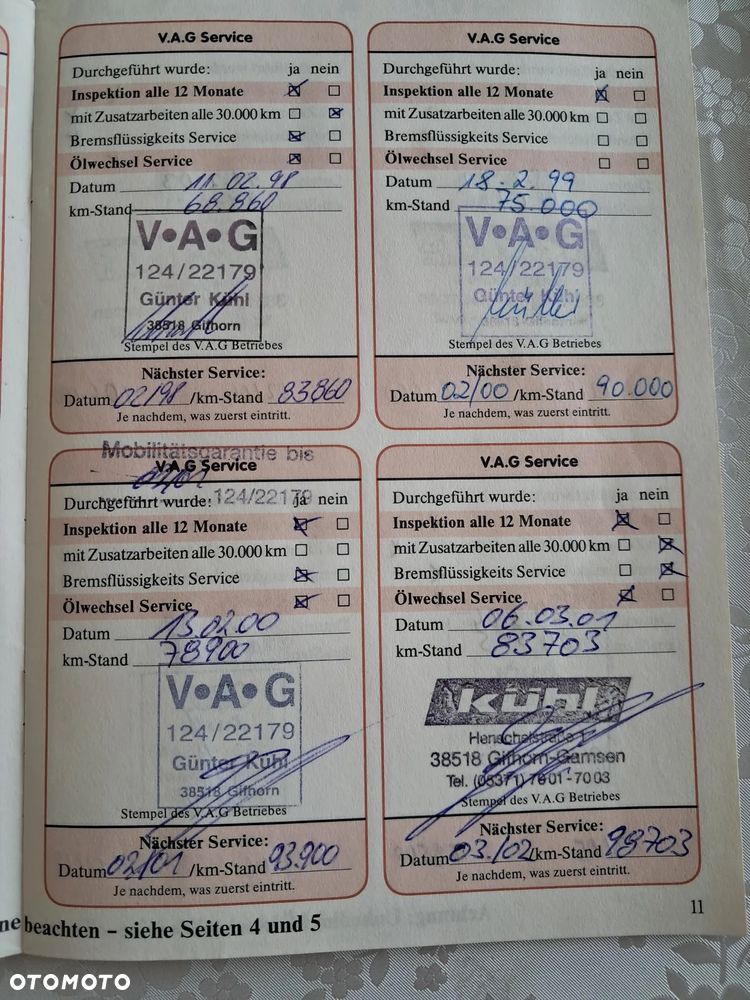 V.A.G Service
Durchgeführt wurde: ja nein
Inspektion alle 12 Monate
mit Zusatzarbeiten alle 30.000 km
Bremsflüssigkeits Service
Ölwechsel Service
Datum 11.02.98
km-Stand 68.860
V•A•G
124/22179
Günter Kühl
38518 Gifhorn
Stempel des V.A.G Betriebes
Nächster Service:
Datum 02/98 /km-Stand 83860
Je nachdem, was zuerst eintritt.
V.A.G Service
Durchgeführt wurde: ja nein
Inspektion alle 12 Monate
mit Zusatzarbeiten alle 30.000 km
Bremsflüssigkeits Service
Ölwechsel Service
Datum 18.2.99
km-Stand 75.000
V•A•G
124/22179
Günter Kühl
38518 Gifhorn
Stempel des V.A.G Betriebes
Nächster Service:
Datum 02/00 /km-Stand 90.000
Je nachdem, was zuerst eintritt.
Mobilitätsgarantie bis
02/01
124/22179
V.A.G Service
Durchgeführt wurde: ja nein
Inspektion alle 12 Monate
mit Zusatzarbeiten alle 30.000 km
Bremsflüssigkeits Service
Ölwechsel Service
Datum 13.02.00
km-Stand 78900
V•A•G
124/22179
Günter Kühl
38518 Gifhorn
Stempel des V.A.G Betriebes
Nächster Service:
Datum 02/01 /km-Stand 93.900
Je nachdem, was zuerst eintritt.
V.A.G Service
Durchgeführt wurde: ja nein
Inspektion alle 12 Monate
mit Zusatzarbeiten alle 30.000 km
Bremsflüssigkeits Service
Ölwechsel Service
Datum 06.03.01
km-Stand 83703
KÜHL
Henschelstraße 1
38518 Gifhorn-Gamsen
Tel. (05371) 7801-7003
Stempel des V.A.G Betriebes
Nächster Service:
Datum 03/02 /km-Stand 98703
Je nachdem, was zuerst eintritt.
11
ne beachten – siehe Seiten 4 und 5
OTOMOTO